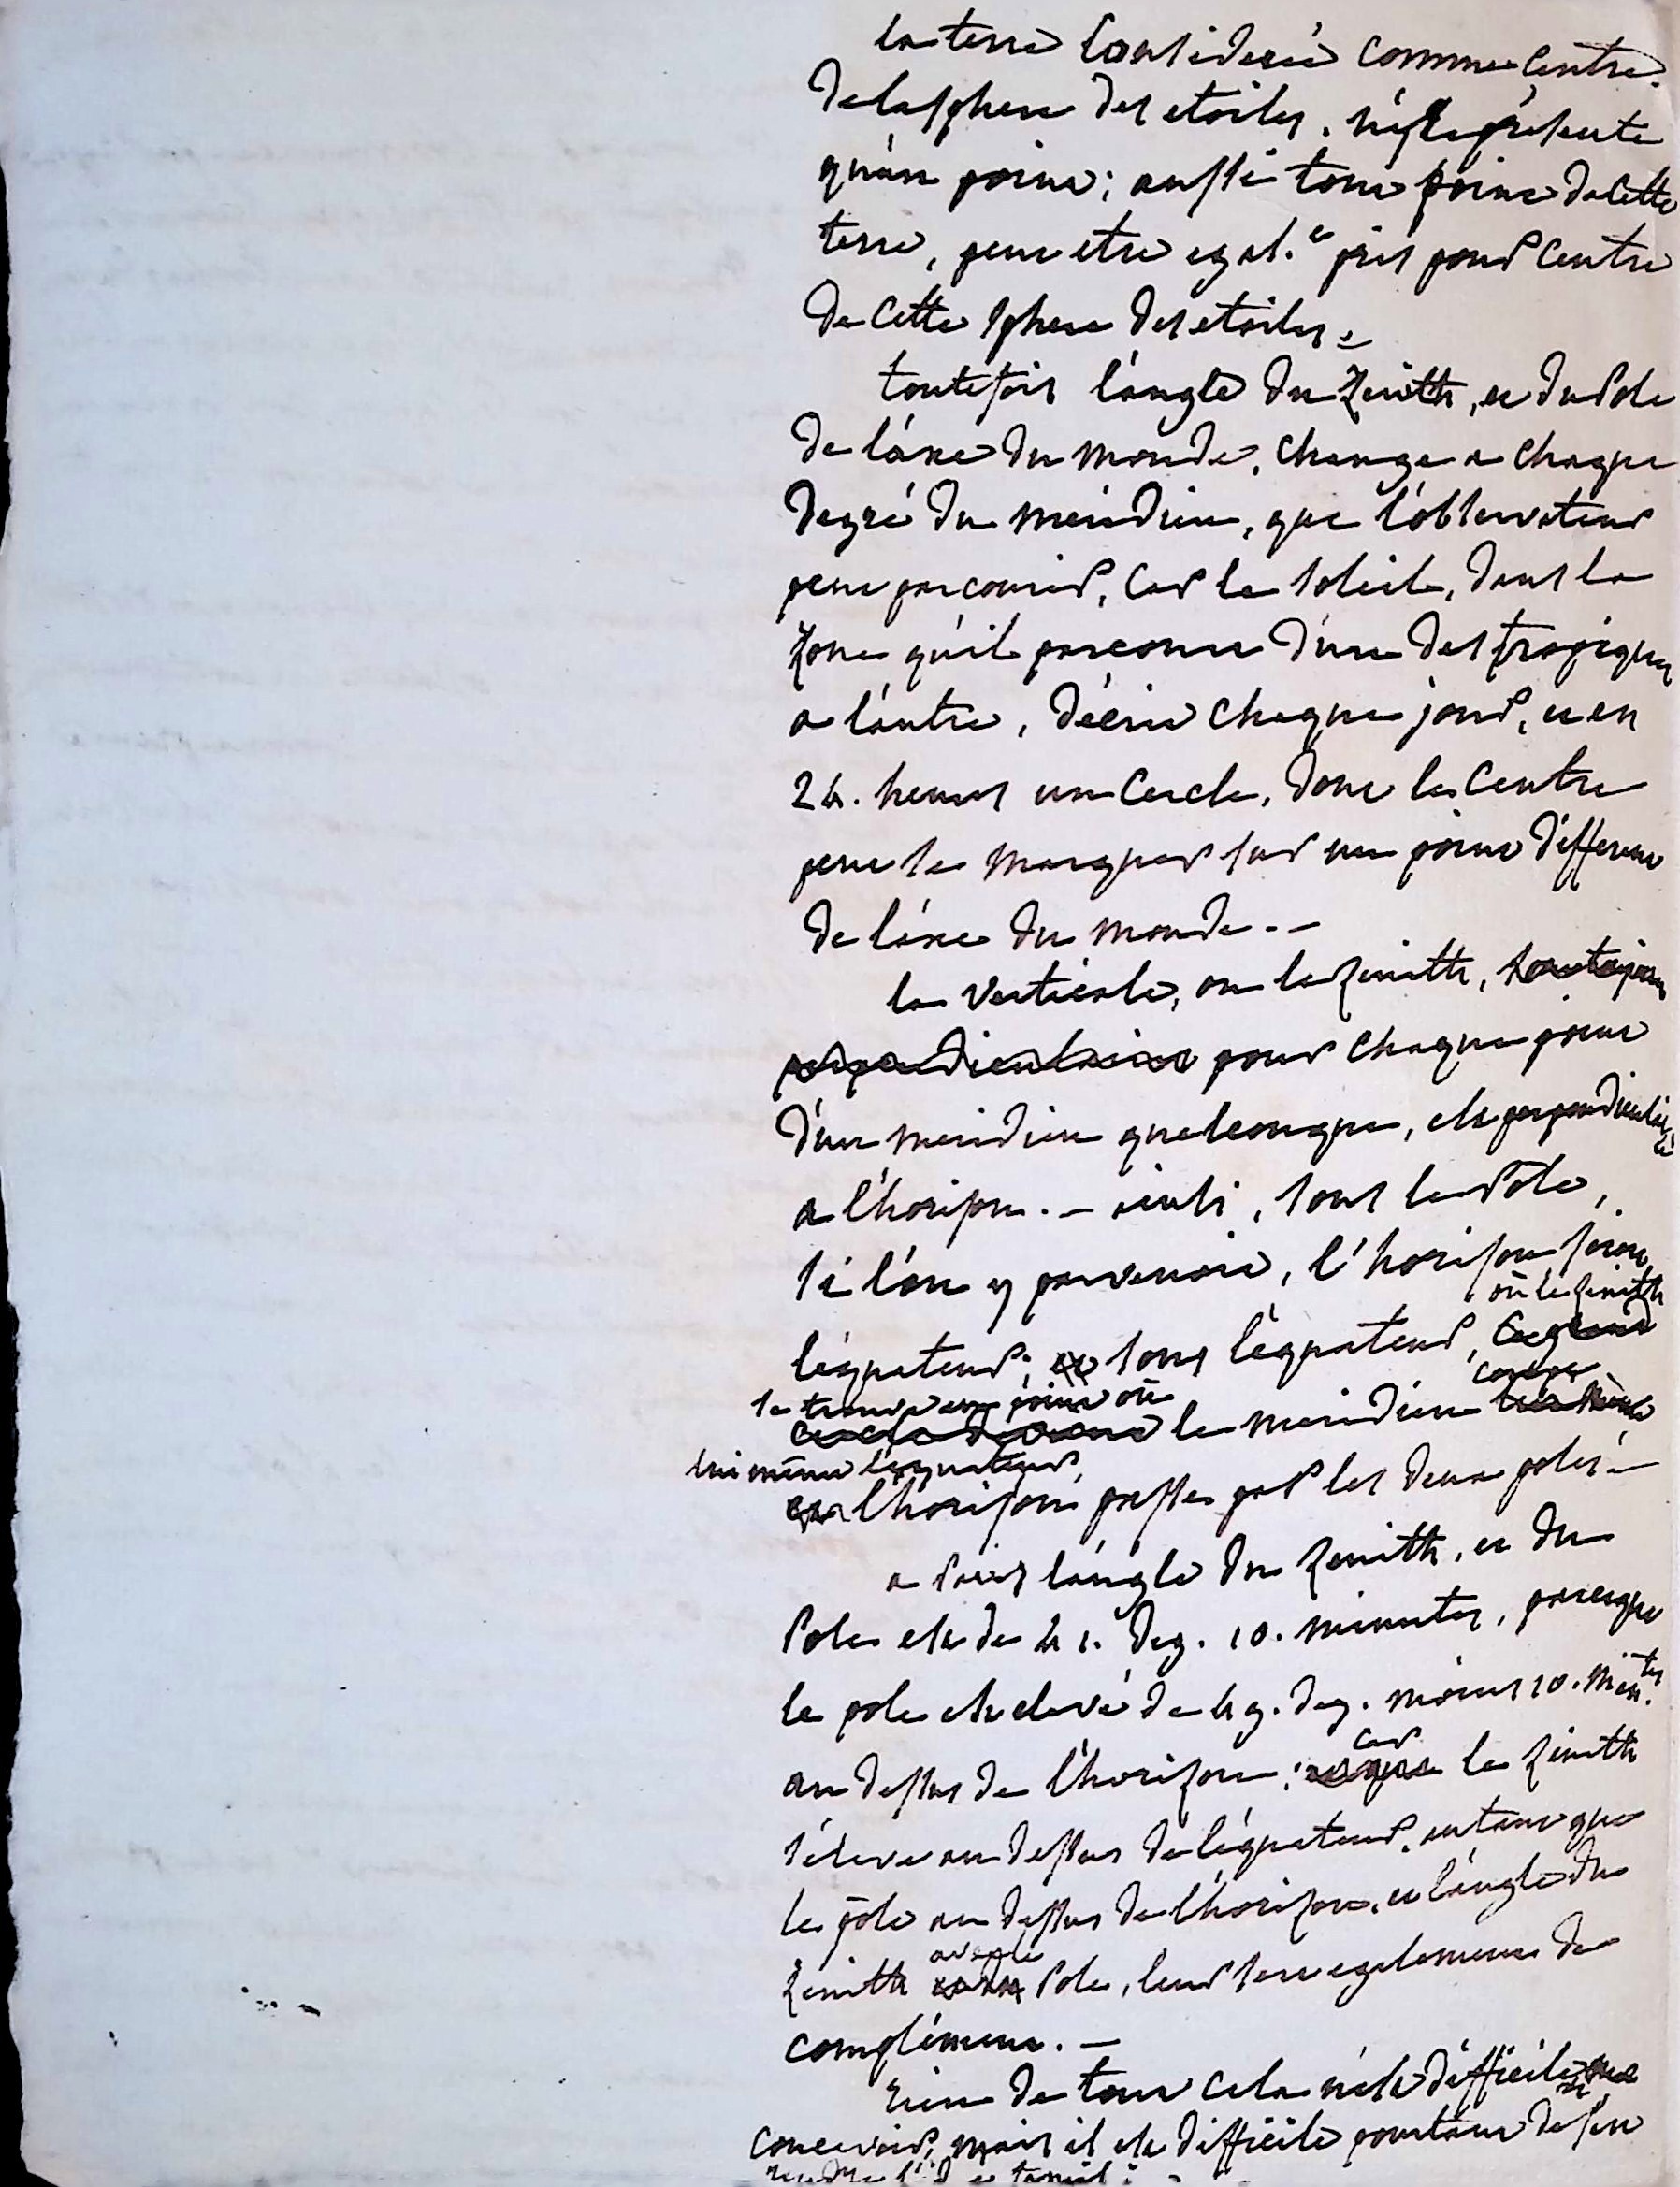 la terre considerée comme centre
de la sphere des etoiles, n'y represente
qu'un point; aussi tout point de cette
terre, peut etre egal.t pris pour centre
de cette sphere des etoiles.
toutefois l'angle du Zenith, et du Pole
de l'axe du monde, change a chaque
degré du meridien, que l'observateur
peut parcourir, car le soleil, dans la
Zone qu'il parcourt d'un des tropiques
a l'autre, décrit chaque jour, et en
24. heures un cercle, dont le centre
peut se marquer sur un point different
de l'axe du monde. -
la Verticale, ou le Zenith, toutejours
perpendiculaire pour chaque point
d'un meridien quelconque, est perpendiculaire
a l'horizon. - ainsi, sous le Pole,
si l'on y parvenoit, l'horison seroit
ou le zenith
l'equateur; et sous l'equateur, ce grand
coupe
se trouve au point où
cercle le meridien
lui même l'equateur,
et l'horison passe par les deux poles. -
a Paris l'angle du Zenith, et du
Pole est de 41. deg. 10. minutes, parceque
le pole est elevé de 49. deg. moins 10. min.tes
car
au dessus de l'horizon; le Zenith
s'eleve au dessus de l'equateur, autant que
le pôle au dessus de l'horizon, et l'angle du
avec le
Zenith et du Pole, leur sert egalement de
complément. -
rien de tout cela n'est difficile
concevoir, mais il est difficile pourtant de s'en